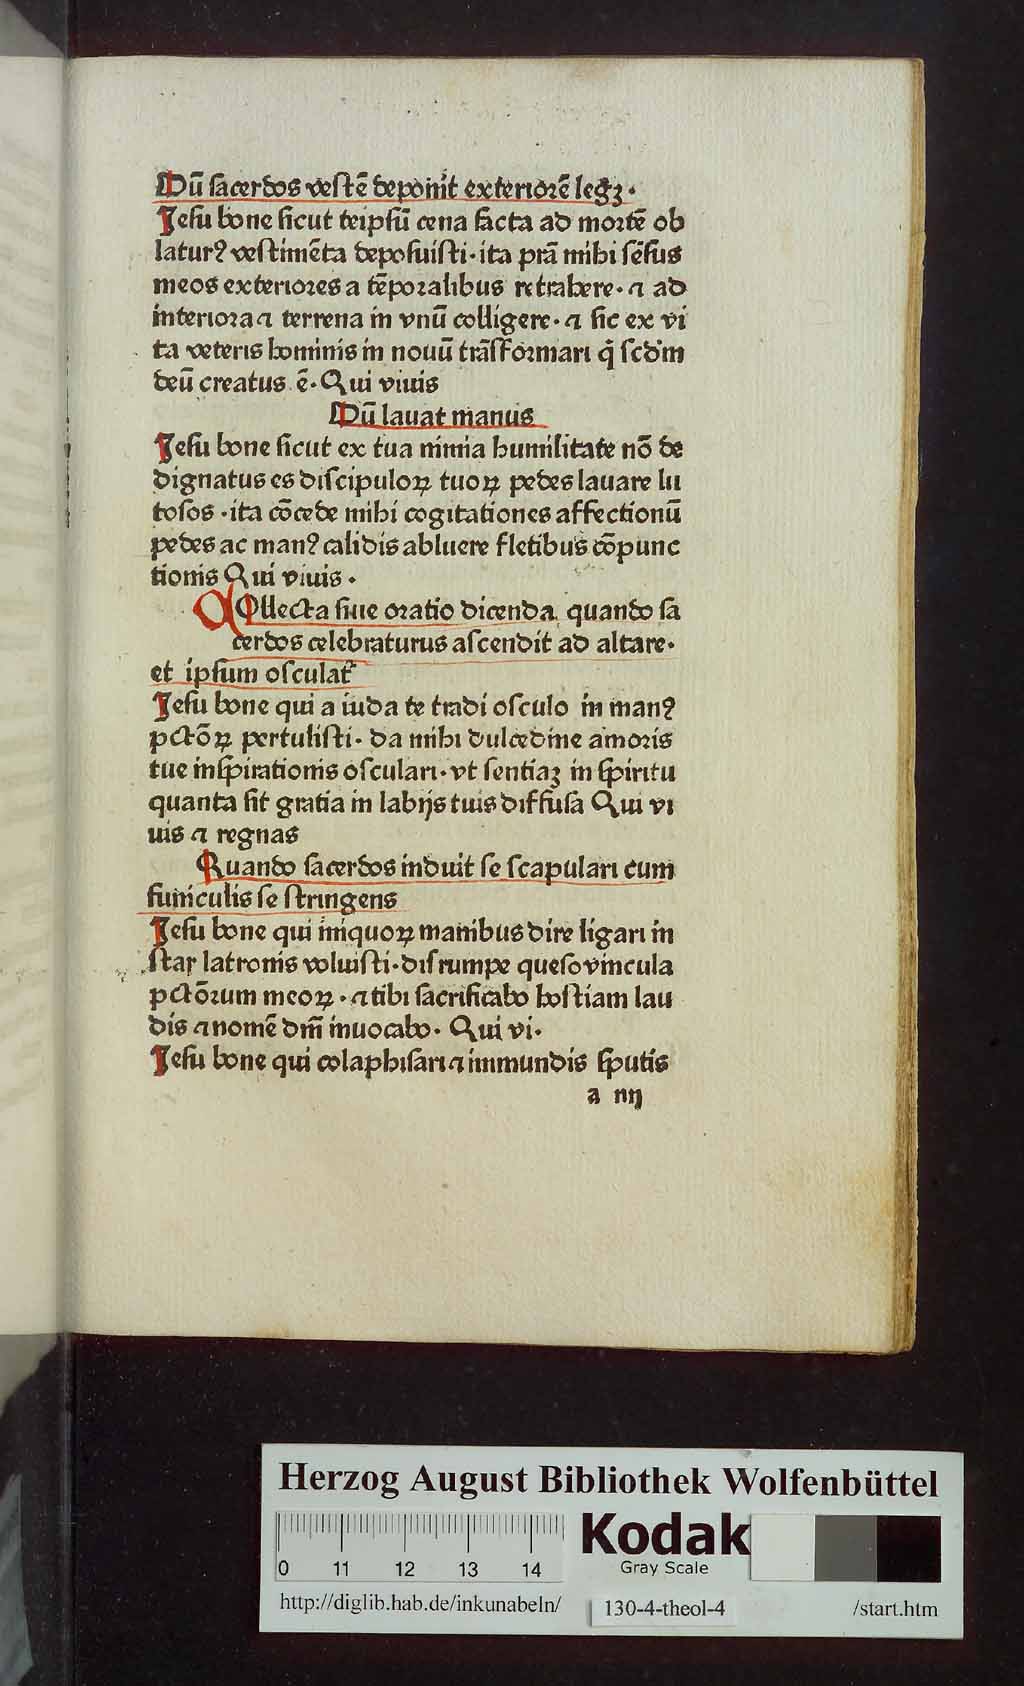 Dū sacerdos vestē deponit exteriorē legꝫ·
Jesu bone sicut teipsū cena facta ad mortē ob
laturꝰ vestimēta deposuisti· ita prā mihi sēsus
meos exteriores a tēporalibus retrahere· ⁊ ad
interiora ⁊ terrena in vnū colligere· ⁊ sic ex vi
ta veteris hominis in nouū trāsformari q̄ scdm̄
deū creatus ē· Qui viuis
Dū lauat manus
Jesu bone sicut ex tua nimia humilitate nō de
dignatus es discipuloꝝ tuoꝝ pedes lauare lu
tosos · ita cōcede mihi cogitationes affectionū
pedes ac manꝰ calidis abluere fletibus cōpunc
tionis Qui viuis ·
COllecta siue oratio dicenda quando sa
cerdos celebraturus ascendit ad altare·
et ipsum osculat᷑
Jesu bone qui a iuda te tradi osculo in manꝰ
pctōꝝ pertulisti· da mihi dulcedine amoris
tue inspirationis osculari· vt sentiaꝫ in spiritu
quanta sit gratia in labijs tuis diffusa Qui vi
uis ⁊ regnas
Quando sacerdos induit se scapulari cum
funiculis se stringens
Jesu bone qui iniquoꝝ manibus dire ligari in
star latronis voluisti· disrumpe queso vincula
pctōrum meoꝝ · ⁊ tibi sacrificabo hostiam lau
dis ⁊ nomē dm̄ inuocabo· Qui vi·
Jesu bone qui colaphisari ⁊ immundis sputis
a iiij
Herzog August Bibliothek Wolfenbüttel
Kodak
Gray Scale
0 11 12 13 14
http://diglib.hab.de/inkunabeln/ 130-4-theol-4 /start.htm